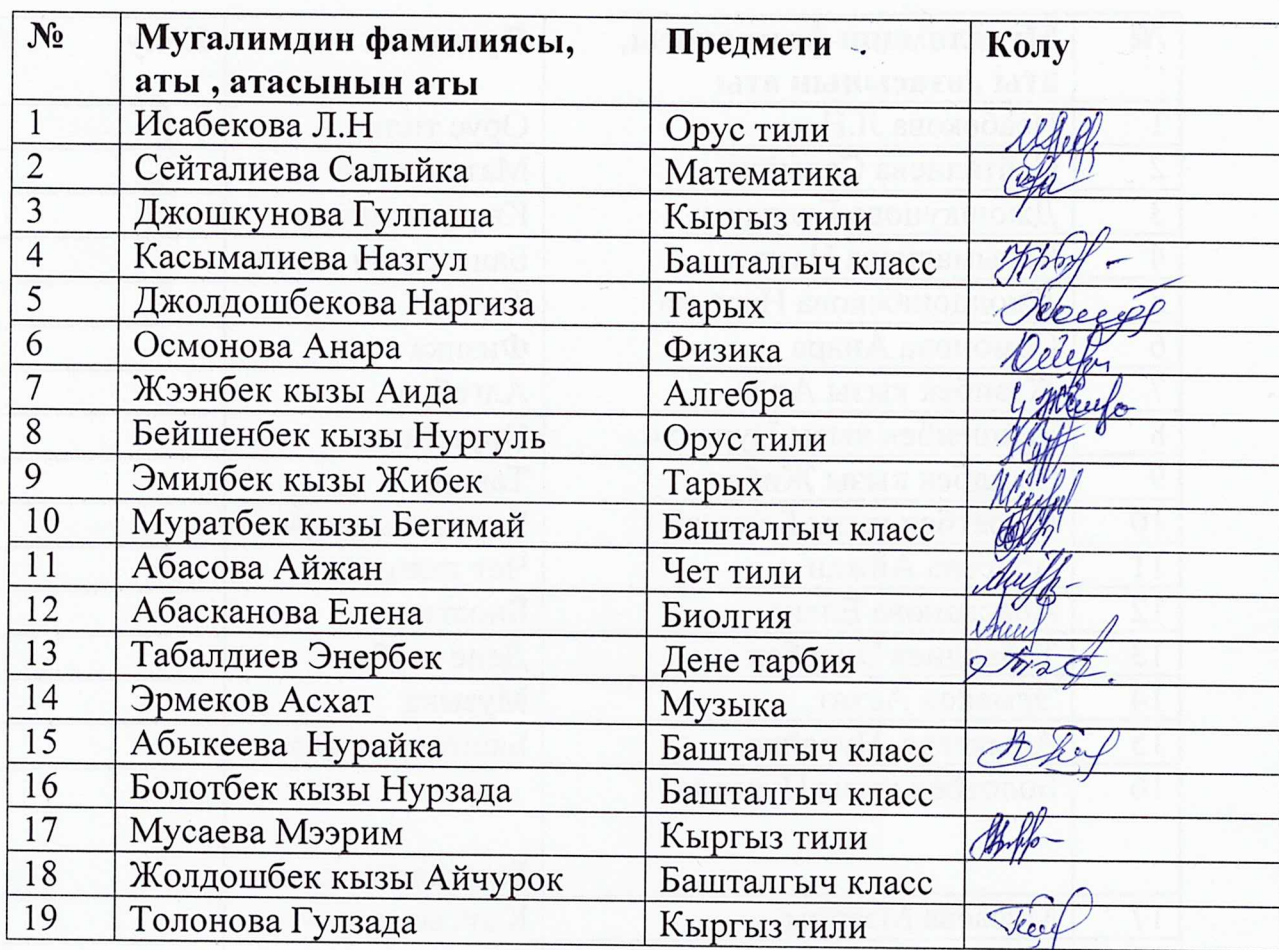 № Мугалимдин фамилиясы, Предмети Колу
аты , атасынын аты
1 Исабекова Л.Н Орус тили
2 Сейталиева Салыйка Математика
3 Джошкунова Гулпаша Кыргыз тили
4 Касымалиева Назгул Башталгыч класс
5 Джолдошбекова Наргиза Тарых
6 Осмонова Анара Физика
7 Жээнбек кызы Аида Алгебра
8 Бейшенбек кызы Нургуль Орус тили
9 Эмилбек кызы Жибек Тарых
10 Муратбек кызы Бегимай Башталгыч класс
11 Абасова Айжан Чет тили
12 Абасканова Елена Биолгия
13 Табалдиев Энербек Дене тарбия
14 Эрмеков Асхат Музыка
15 Абыкеева Нурайка Башталгыч класс
16 Болотбек кызы Нурзада Башталгыч класс
17 Мусаева Мээрим Кыргыз тили
18 Жолдошбек кызы Айчурок Башталгыч класс
19 Толонова Гулзада Кыргыз тили